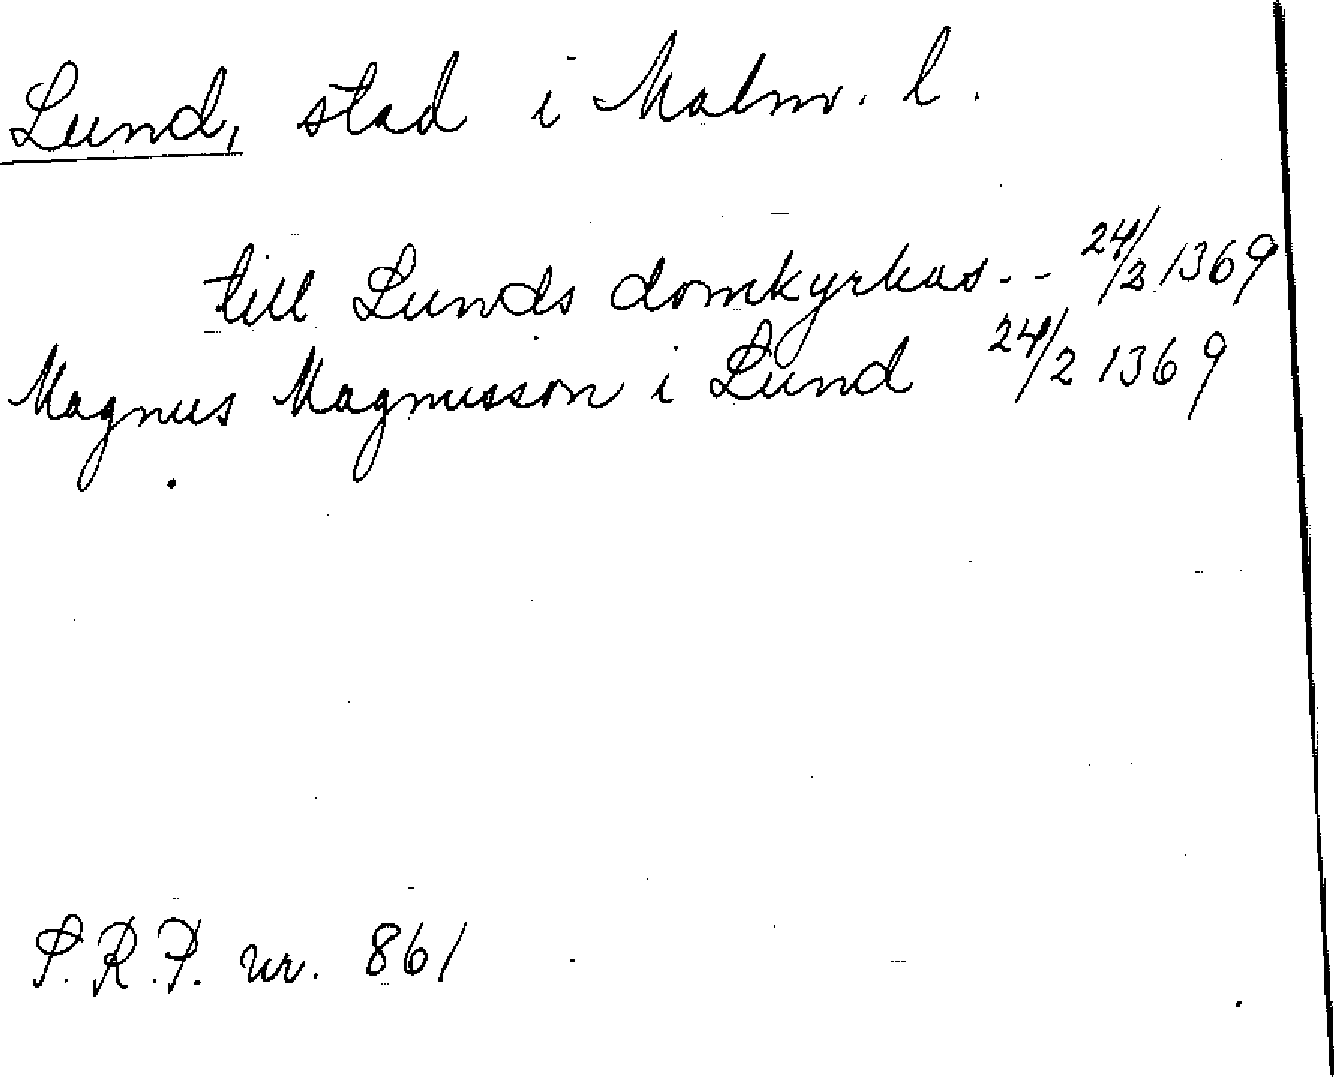 Lund, stad i Malm. l.
till Lunds domkyrkas -- 24/2 1369
Magnus Magnusson i Lund 24/2 1369
S.R.P. nr. 861